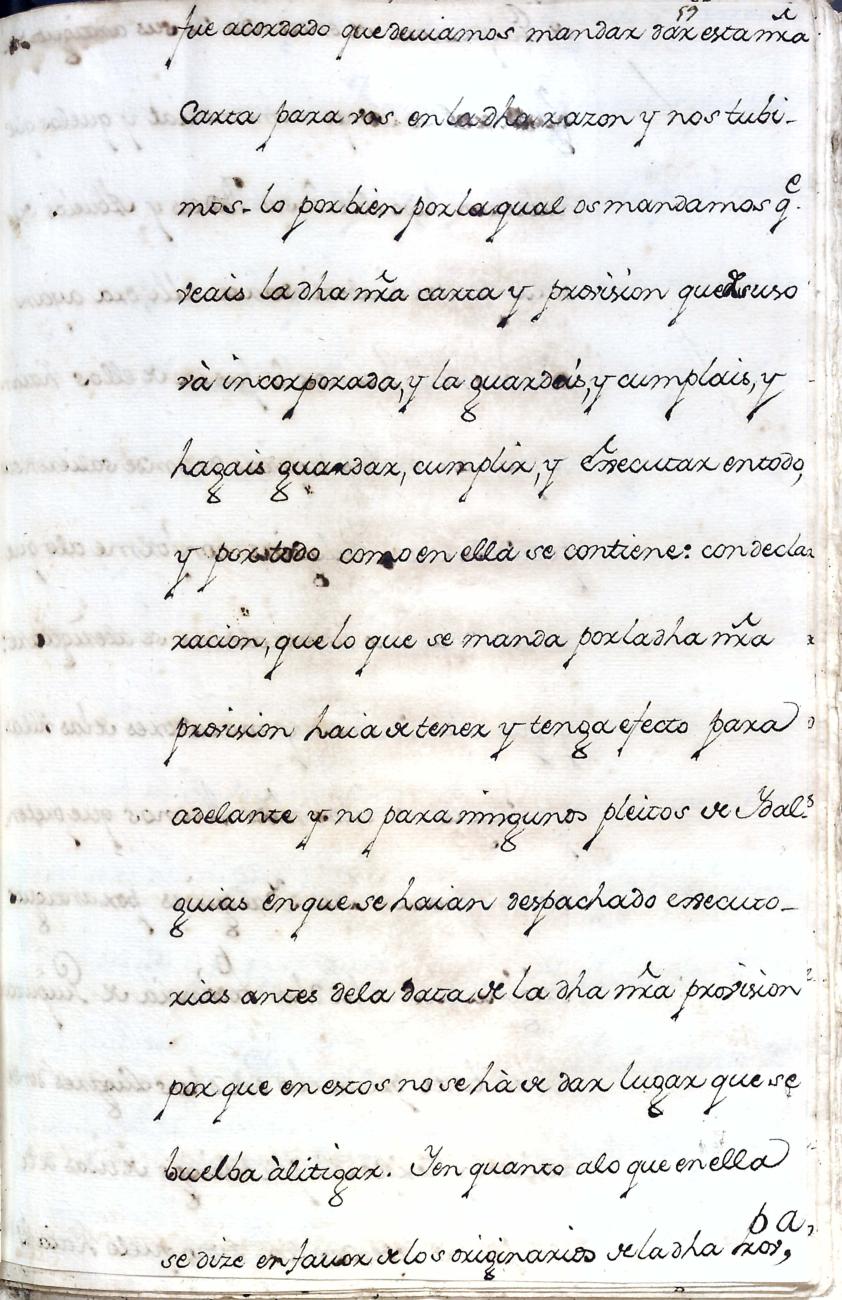 59
fue acordado que deuiamos mandar dar esta nr̃a
Carta para vos en la dha razon y nos tubi-
mos lo por bien por la qual os mandamos q.e
veais la dha nr̃a carta y provision que de suso
và incorporada, y la guardeis, y cumplais, y
hagais guardar, cumplir, y executar en todo,
y por todo como en ella se contiene: con decla
racion, que lo que se manda por la dha nr̃a
provision haia de tener y tenga efecto para
adelante y no para ningunos pleitos de Ydal
guias en que se haian despachado executo-
rias antes de la data de la dha nr̃a provision
por que en estos no se hà de dar lugar que se
buelba à litigar. Y en quanto a lo que en ella
se dize en fauor de los originarios de la dha